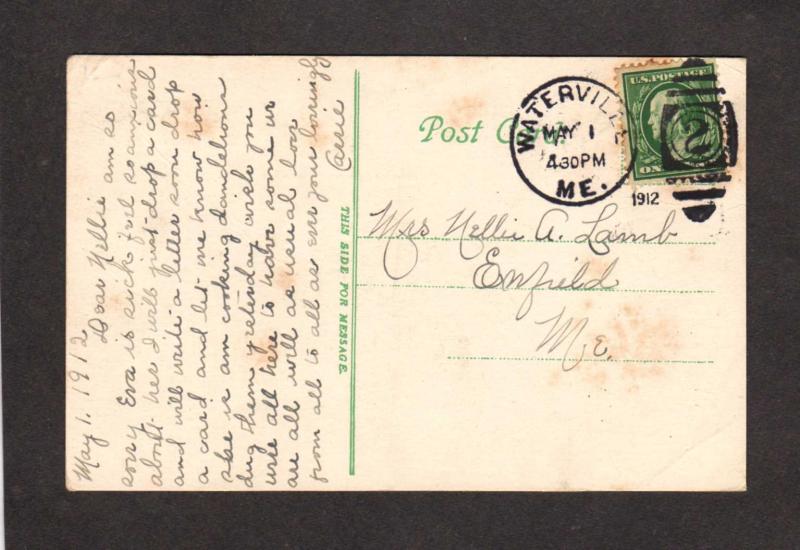 May 1. 1912
Dear Nellie am so
sorry Eva is sick feel so anxious
about her I will just drop a card
and will write a letter soon drop
a card and let me know how
she is am cooking dandelions
dug them yesterday wish you
were all here to have some we
are all well as usual love
from all to all as ever your lovingly
Cassie
THIS SIDE FOR MESSAGE.
Post Card
WATERVILLE
MAY 1
4 30 PM
ME.
1912
U.S. POSTAGE
2
Mrs Nellie A. Lamb
Enfield
Me.